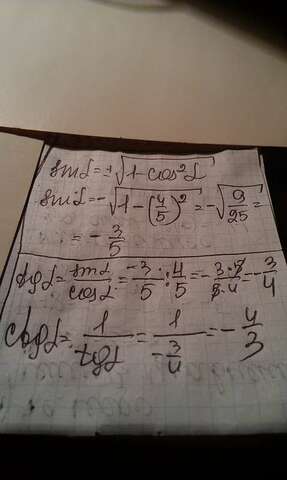 sin α = ± √(1 - cos² α)
sin α = - √(1 - (4/5)²) = - √(9/25) =
= - 3/5
tg α = sin α / cos α = -3/5 : 4/5 = - 3·5 / 5·4 = - 3/4
ctg α = 1 / tg α = 1 / (- 3/4) = - 4/3